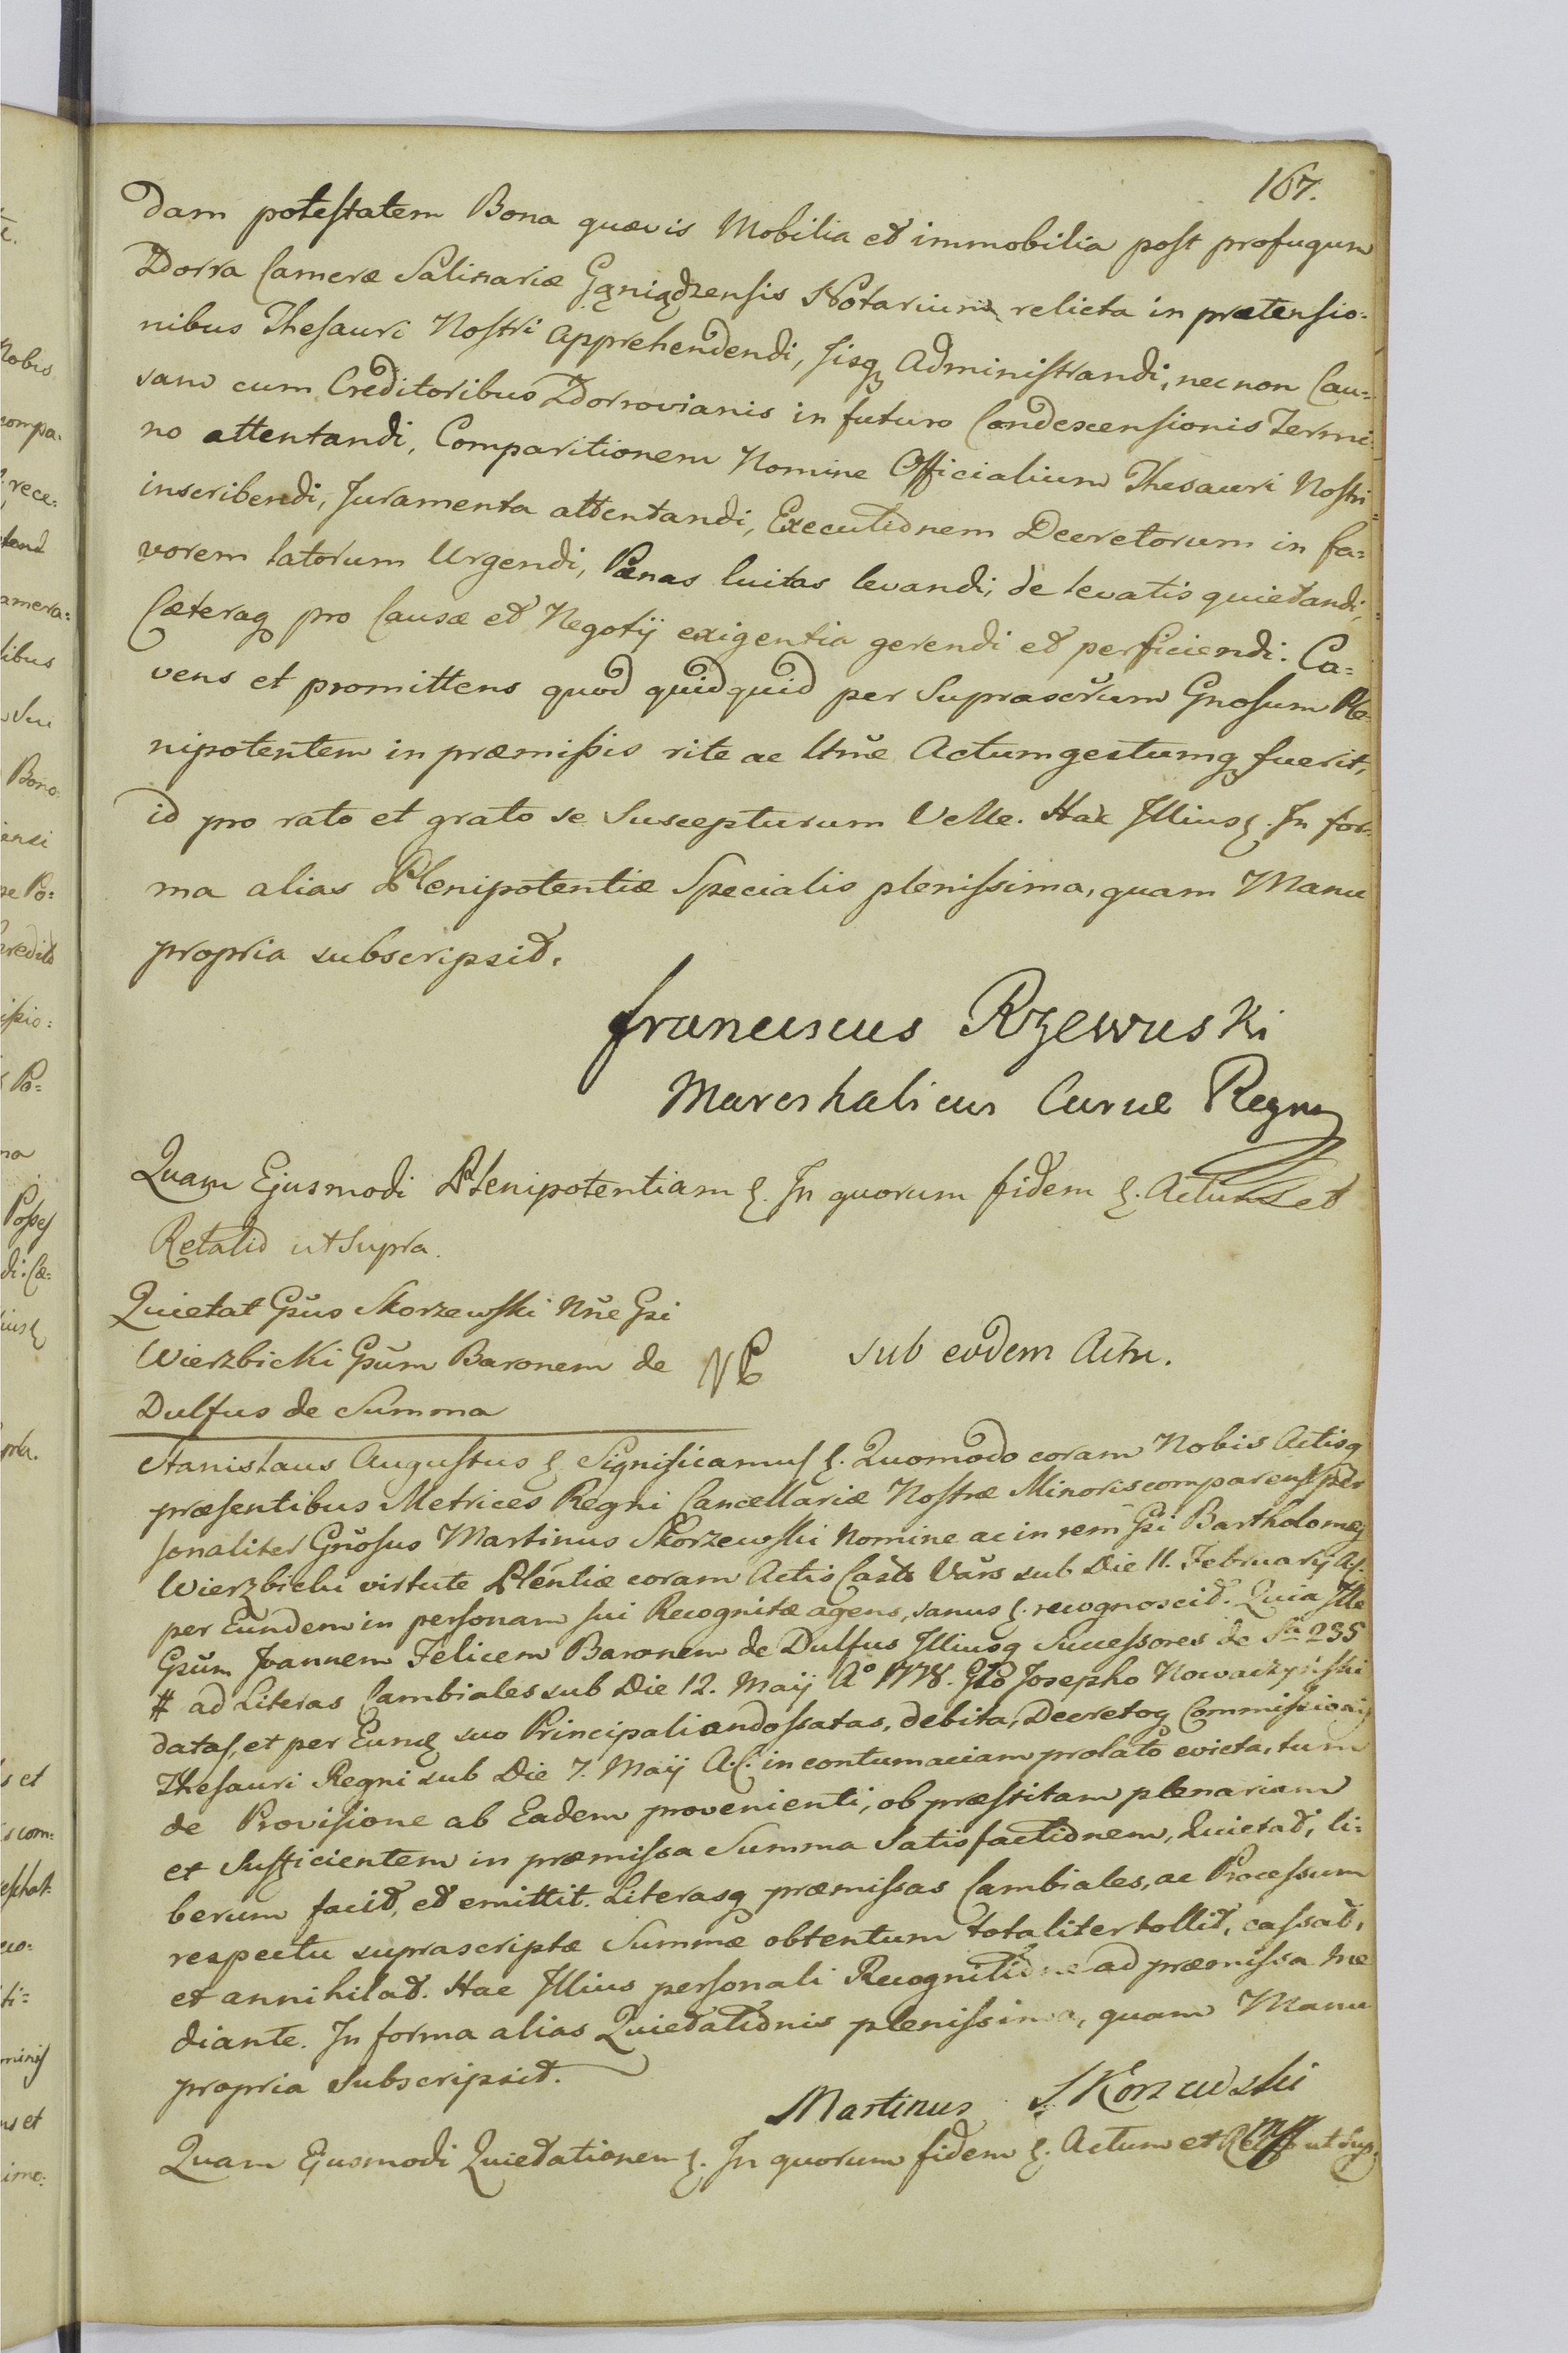 167.
dam potestatem Bona quævis Mobilia et immobilia post profugum
Dorra Cameræ Salinariæ Gąniądzensis Notarium relicta in prætensio=
nibus Thesauri Nostri apprehendendi, iisq; administrandi, nec non Cau=
sam cum Creditoribus Dorrovianis in futuro Condescensionis Termi=
no attentandi, Comparitionem Nomine Officialium Thesauri Nostri
inscribendi, Juramenta attentandi, Executionem Decretorum in fa=
vorem latorum Urgendi, Pœnas luitas levandi, de levatis quietandi,
Cæteraq; pro Causæ et Negotij exigentia gerendi et perficiendi. Ca=
vens et promittens quod quidquid per Suprascrūm Gnosum Ple=
nipotentem in præmissis rite ac ltme Actum gestumq; fuerit,
id pro rato et grato se Suscepturum Velle. Hac Illius &. In for=
ma alias Plenipotentiæ Specialis plenissima, quam Manu
propria subscripsit.
Franciscus Rzewuski
Mareshalicus Curiæ Regni
Quam Ejusmodi Plenipotentiam &. In quorum fidem &. Actum et
ut Supra.
Quietat Gsūs Skorzewski Nñe Gsi
Wierzbicki Gsūm Baronem de
Dulfus de Summa
sub eodem Actu.
Stanislaus Augustus & Significamus &. Quomodo coram Nobis Actisq
præsentibus Metrices Regni Cancellariæ Nostræ Minoris comparens per
sonaliter Gñosus Martinus Skorzewski Nomine ac in rem Gsi Bartholomej
Wierzbicki virtute Plentiæ coram Actis Casts Vars sub Die 11. Februarij A.
per Eundem in personam sui Recognitæ agens, sanus &. recognoscit. Quia Ille
Gsūm Joannem Felicem Baronem de Dulfus Illiusq Successores de Sa 235
# ad Literas Cambiales sub Die 12. Maij Ao 1778. Gso Josepho Nowaczyński
datas, et per Eunq suo Principali andossatas, debita, Decretoq Commissionis
Thesauri Regni sub Die 7. Maij A.C. in contumaciam prolato evicta, tum
de Provisione ab Eadem provenienti, ob præstitam plenariam
et Sufficientem in præmissa Summa Satisfactionem, Quietat, li=
berum facit, et emittit. Literasq præmissas Cambiales, ac Processum
respectu suprascriptæ Summæ obtentum totaliter tollit, cassat,
et annihilat. Hac Illius personali Recognitione ad præmissa me
diante. In forma alias Quietationis plenissima, quam Manu
propria Subscripsit.
Martinus Skorzewski
Quam Ejusmodi Quietationem &. In quorum fidem &. Actum et ut Sup.